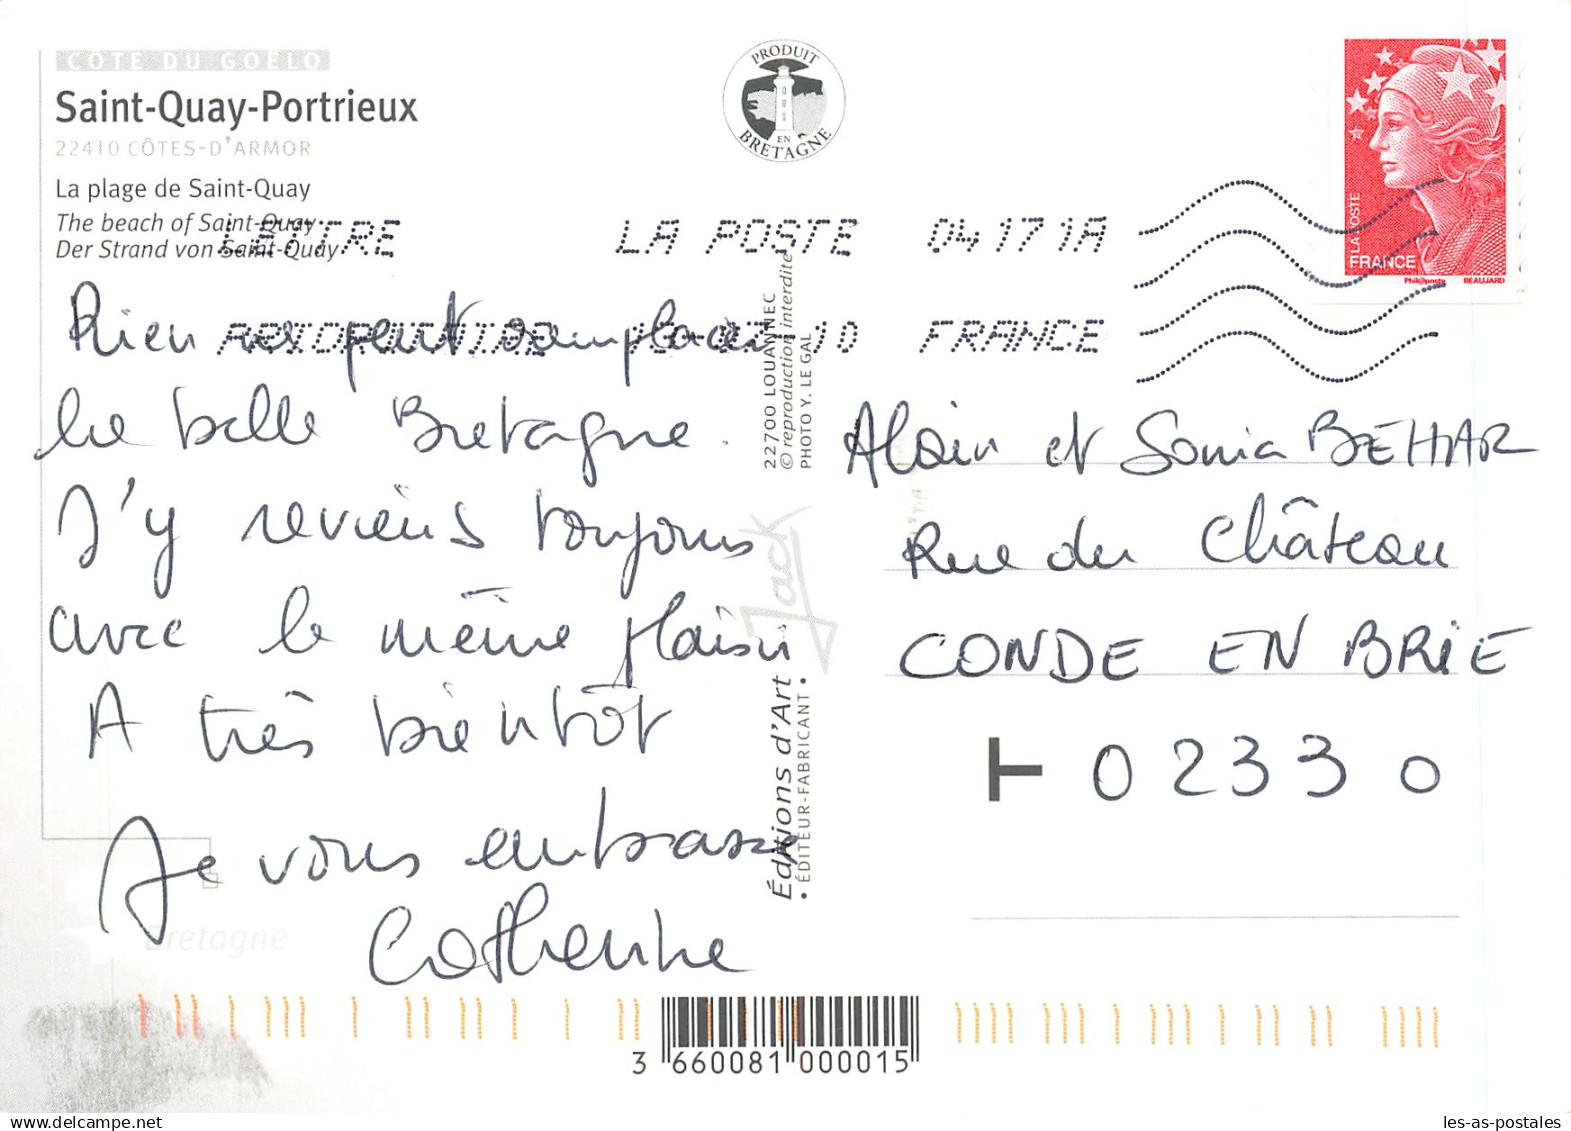 CÔTE DU GOËLO
Saint-Quay-Portrieux
22410 CÔTES-D'ARMOR
La plage de Saint-Quay
The beach of Saint-Quay
Der Strand von Saint-Quay
PRODUIT
EN
BRETAGNE
LA POSTE
FRANCE
Phil@poste
BEAUJARD
LETTRE LA POSTE 04171A
10 FRANCE
Rien ne peut remplacer
la belle Bretagne.
J'y reviens toujours
avec le même plaisir
A très bientôt
Je vous embrasse
Catherine
22700 LOUANNEC
© reproduction interdite
PHOTO Y. LE GAL
Jack
Éditions d'Art
• ÉDITEUR-FABRICANT •
Alain et Sonia BEHAR
Rue du Château
CONDE EN BRIE
T 02330
Bretagne
3 660081 000015
les-as-postales